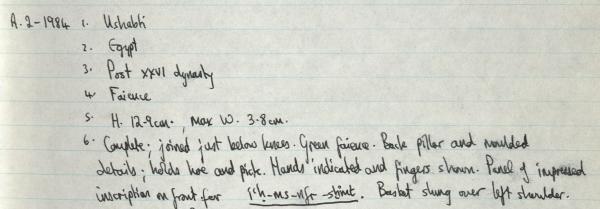 A.2-1984 1. Ushabti
2. Egypt
3. Post XXVI dynasty
4. Faience
5. H. 12.9cm. ; max W. 3.8cm.
6. Complete; joined just below knees. Green faience. Back pillar and moulded
details; holds hoe and pick. Hands indicated and fingers shown. Panel of impressed
inscription on front for . Basket slung over left shoulder.